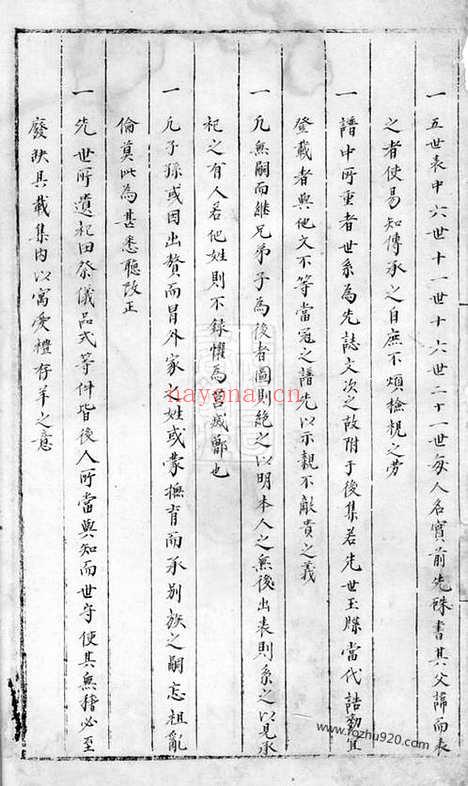 一五世表中六世十一世十六世二十一世每人名實前先硃書其父諱而表
之者使易知傳承之自庶不煩檢視之勞
一譜中所重者世系為先誌文次之故附于後集若先世玉牒當代誥勅宜
登載者與他文不等當冠之譜先以示親不敵貴之義
一凡無嗣而繼兄弟子為後者圖則絕之以明本人之無後出表則系之以見承
祀之有人若他姓則不錄懼為莒滅鄫也
一凡子孫或因出贅而冒外家之姓或蒙撫育而承别族之嗣忘祖亂
倫莫此為甚悉聽改正
一先世所遺祀田祭儀品式等件皆後人所當與知而世守使其無稽必至
廢缺具載集内以寓愛禮存羊之意
hayona.cn
www.fozhu920.com